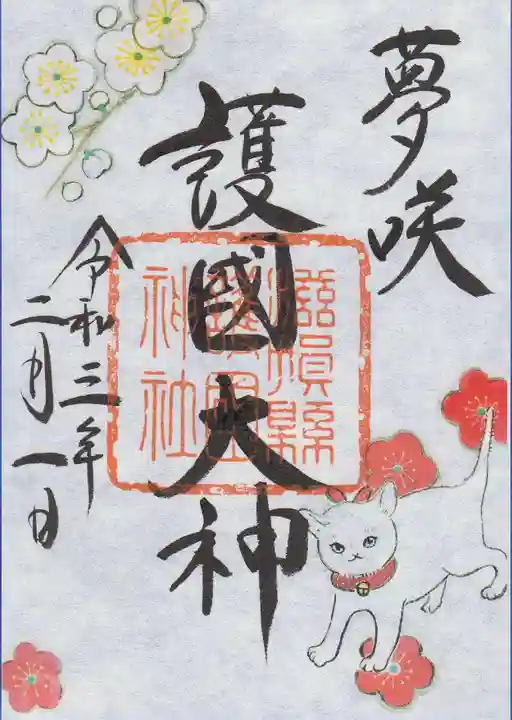 夢咲
護國大神
滋賀縣
護國
神社
令和三年
二月一日